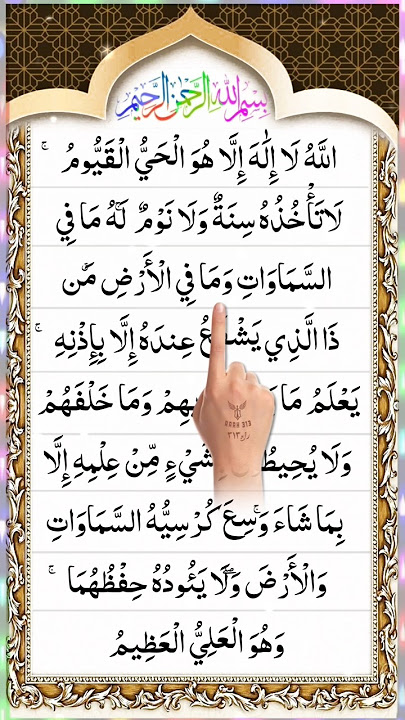 بِسْمِ اللهِ الرَّحْمٰنِ الرَّحِيْمِ
اللَّهُ لَا إِلَٰهَ إِلَّا هُوَ الْحَيُّ الْقَيُّومُ ۚ
لَا تَأْخُذُهُ سِنَةٌ وَلَا نَوْمٌ لَّهُ مَا فِي
السَّمَاوَاتِ وَمَا فِي الْأَرْضِ مَن
ذَا الَّذِي عِندَهُ إِلَّا بِإِذْنِهِ ۚ
يَعْلَمُ مَا وَمَا خَلْفَهُمْ
وَلَا مِّنْ عِلْمِهِ إِلَّا
بِمَا شَاءَ وَسِعَ كُرْسِيُّهُ السَّمَاوَاتِ
وَالْأَرْضَ وَلَا يَئُودُهُ حِفْظُهُمَا ۚ
وَهُوَ الْعَلِيُّ الْعَظِيمُ
٣١٣